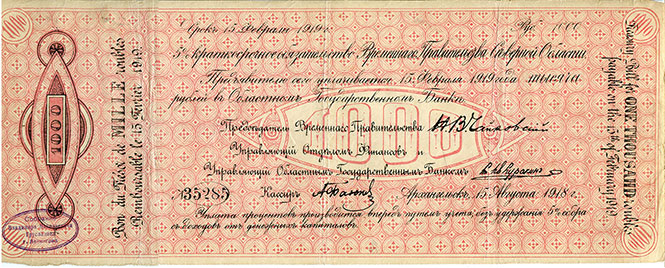 Срокъ 15 Февраля 1919 г.
Руб. 1000
5% краткосрочное обязательство Временнаго Правительства Сѣверной Области.
Предъявителю сего уплачивается, 15 Февраля 1919 года тысяча
рублей въ Областномъ Государственномъ Банкѣ
Предсѣдатель Временнаго Правительства Н. В. Чайковскій
Управляющій Отдѣломъ Финансовъ и
Управляющій Областнымъ Государственнымъ Банкомъ
№ 35285 Кассиръ Архангельскъ, 15 Августа 1918 г.
Уплата процентовъ производится впередъ путемъ учета, безъ удержанія 5% сбора
съ доходовъ отъ денежныхъ капиталовъ.
1000
1000
Bon du Trésor de MILLE roubles
Remboursable le 15 Février 1919.
Treasury Bill for ONE THOUSAND roubles
payable on the 15th of February 1919